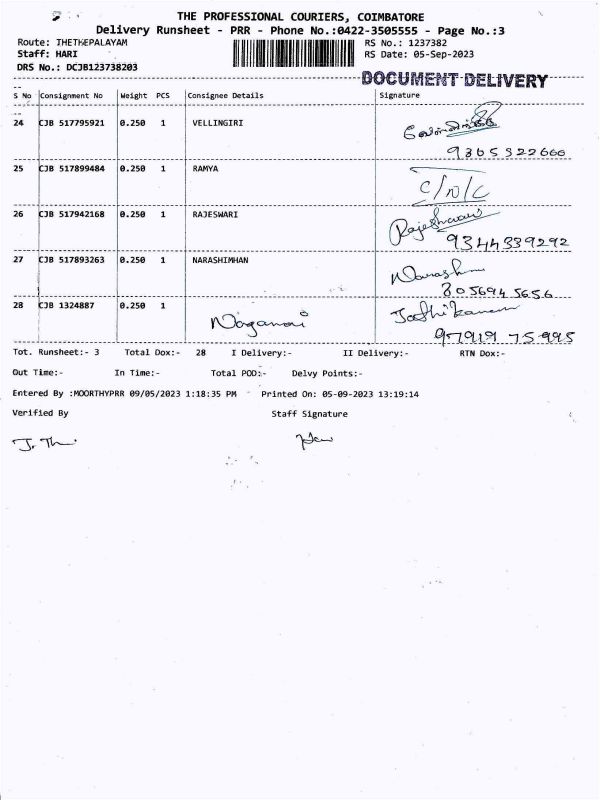 THE PROFESSIONAL COURIERS, COIMBATORE
Delivery Runsheet - PRR - Phone No.:0422-3505555 - Page No.:3
Route: THETHEPALAYAM RS No.: 1237382
Staff: HARI RS Date: 05-Sep-2023
DRS No.: DCJB123738203
DOCUMENT DELIVERY
S No Consignment No Weight PCS Consignee Details Signature
24 CJB 517795921 0.250 1 VELLINGIRI
9365322666
25 CJB 517899484 0.250 1 RAMYA C/N/C
26 CJB 517942168 0.250 1 RAJESWARI Rajeshwari
9344339292
27 CJB 517893263 0.250 1 NARASHIMHAN
8056945656
28 CJB 1324887 0.250 1
Tot. Runsheet:- 3 Total Dox:- 28 I Delivery:- II Delivery:- RTN Dox:-
Out Time:- In Time:- Total POD:- Delvy Points:-
Entered By :MOORTHYPRR 09/05/2023 1:18:35 PM - Printed On: 05-09-2023 13:19:14
Verified By Staff Signature